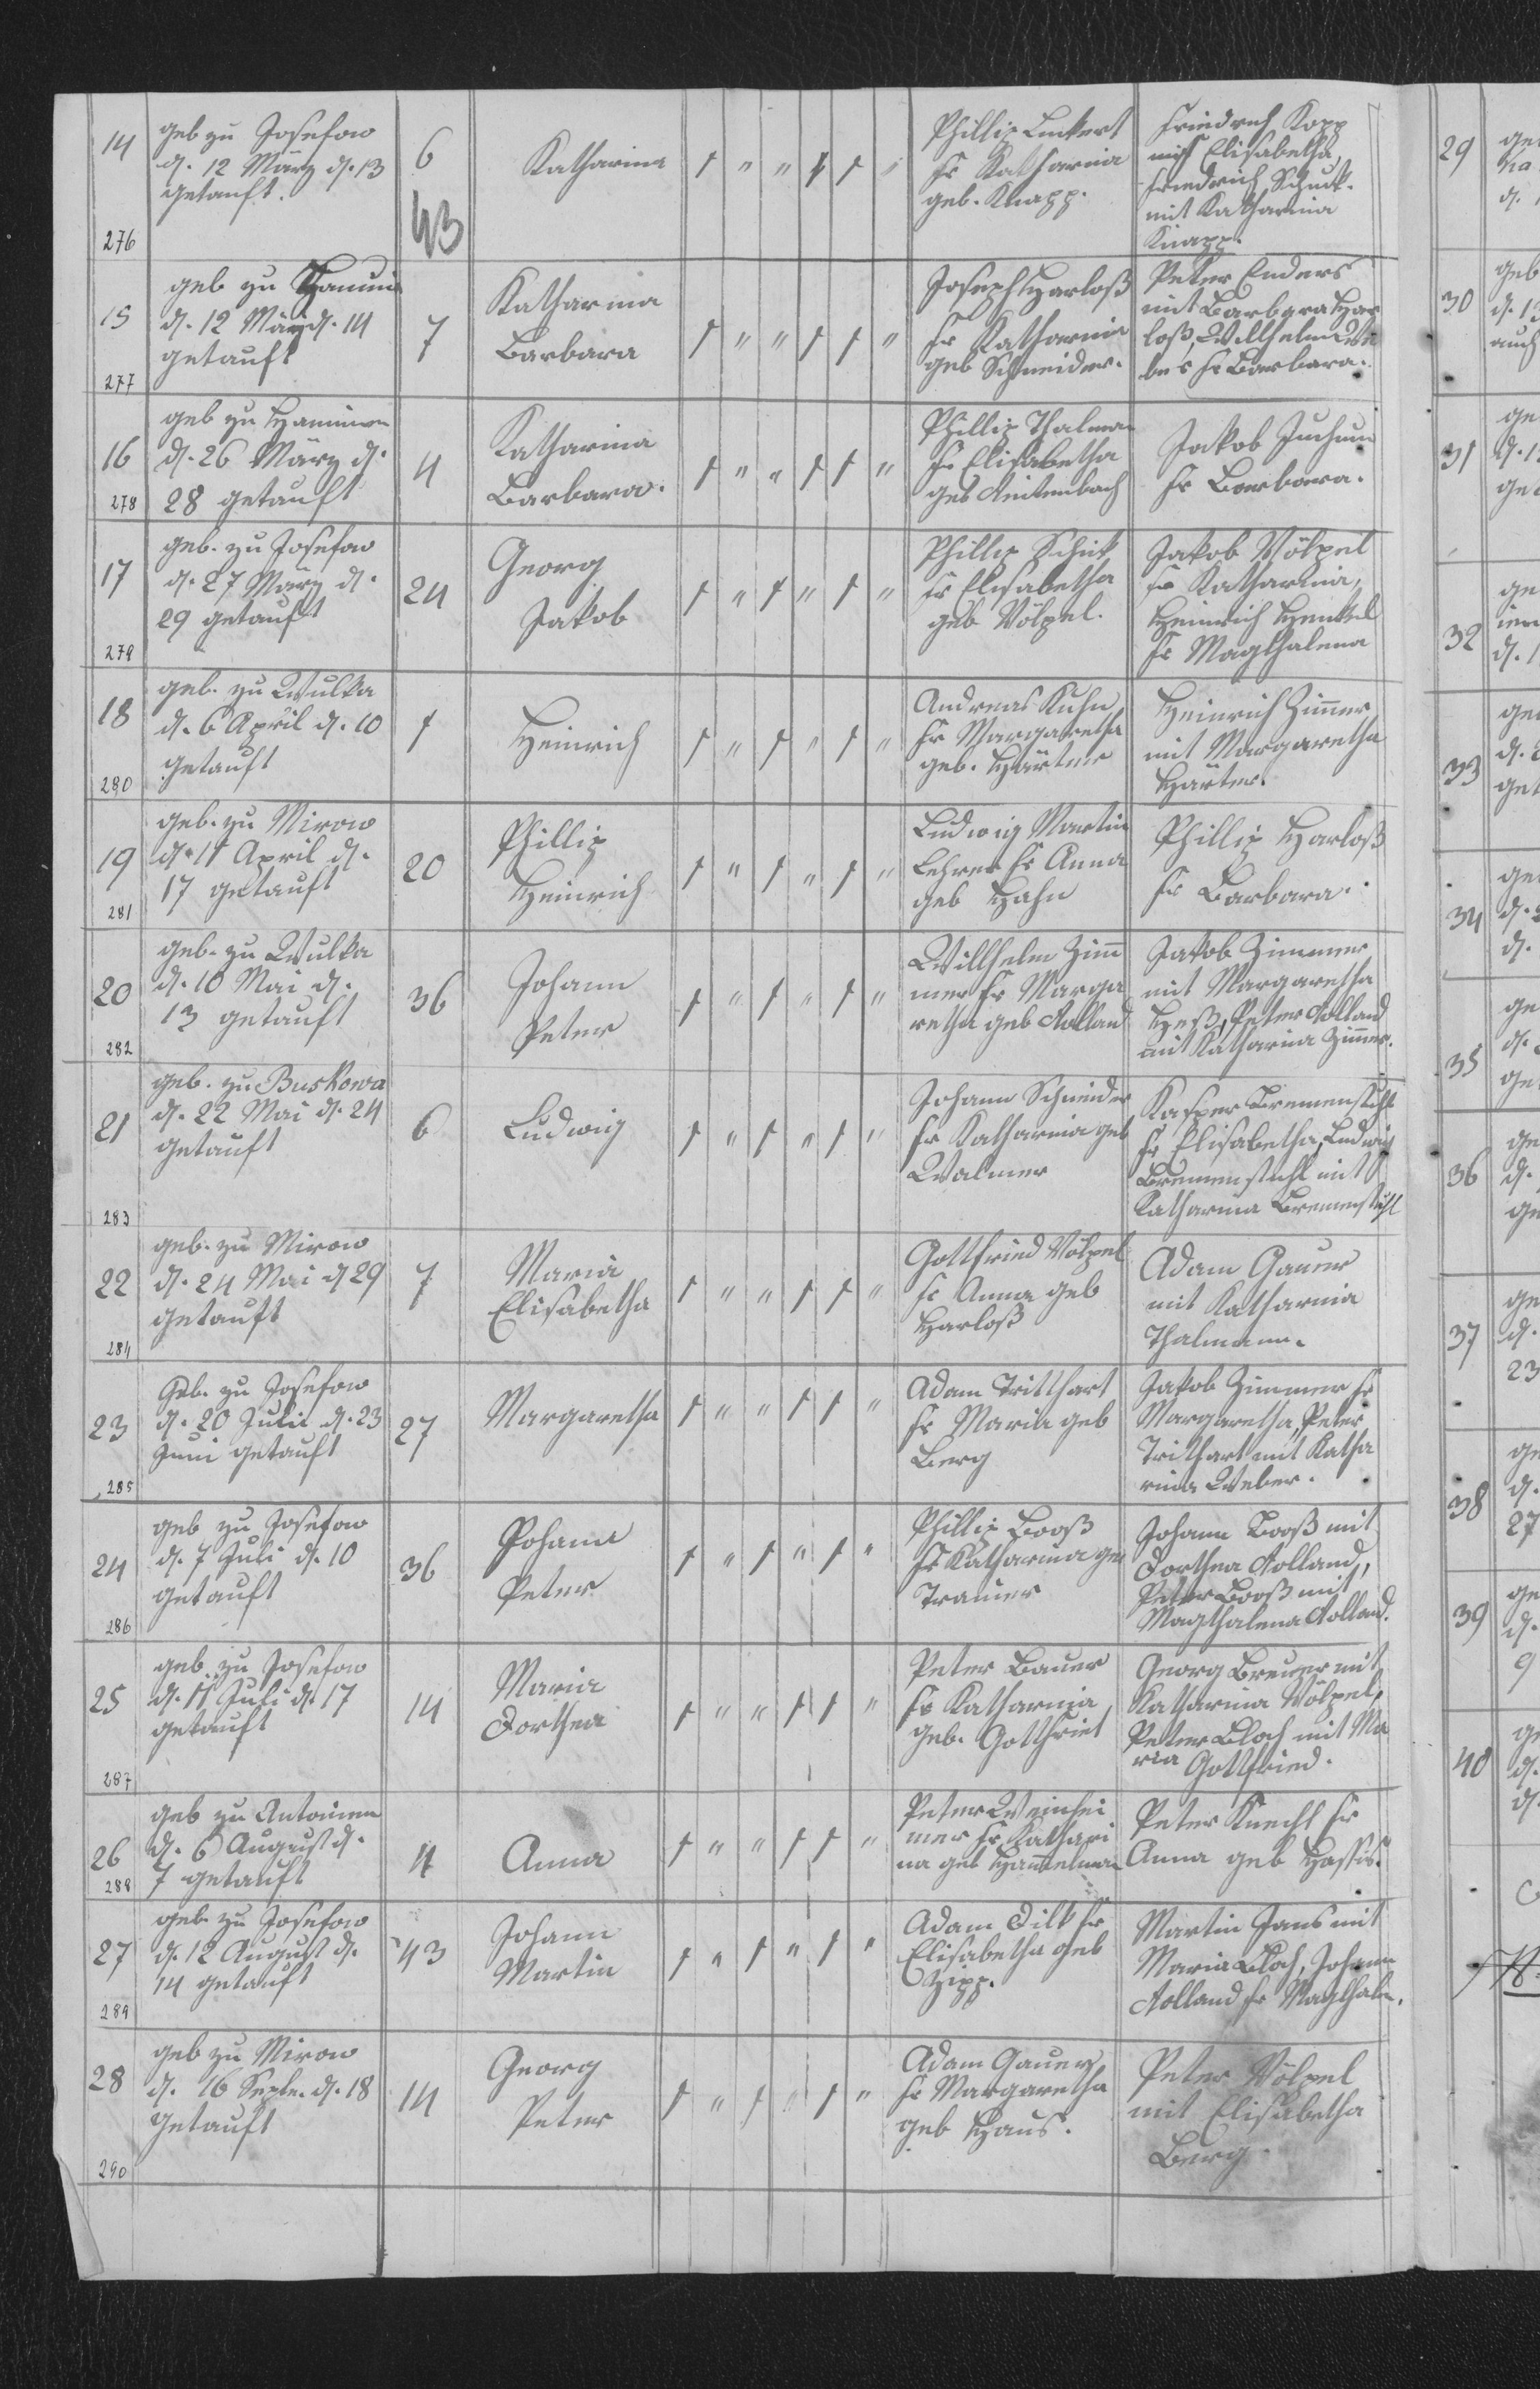 14
276
geb zu Josefow
d. 12 März d. 13
getauft.
6
43
Katharina
1 " " 1 1 "
Phillip Lukert
fr Katharina
geb. Knapp.
Friedrich Kopp
mit Elisabetha
Friedrich Schuck.
mit Katharina
Knapp.
15
277
geb zu
d. 12 März d. 14
getauft
7
Katharina
Barbara
1 " " 1 1 "
Joseph Harloß
fr Katharina
geb Schneider.
Peter Enders
mit Barbara Har
loß, Willhelm
fr Barbara.
16
278
geb zu Hanunin
d. 26 März d.
28 getauft
4
Katharina
Barbara.
1 " " 1 1 "
Phillip Thalman
fr Elisabetha
geb
Jakob Juchum
fr Barbara.
17
279
geb. zu Josefow
d. 27 März d.
29 getauft
24
Georg
Jakob
1 " 1 " 1 "
Phillip Schick
fr Elisabetha
geb Völpel.
Jakob Völpel
fr Katharina,
Heinrich Henkel
fr Magthalena
18
280
geb. zu Wulka
d. 6 April d. 10
getauft
1
Heinrich
1 " 1 " 1 "
Andreas Kuhn
fr Margaretha
geb. Härter
Heinrich Zimer
mit Margaretha
Härter.
19
281
geb. zu Mirow
d. 11 April d.
17 getauft
20
Phillip
Heinrich
1 " 1 " 1 "
Ludwig Martin
Lehrer fr Anna
geb Hahn
Phillip Harloß
fr Barbara.
20
282
geb. zu Wulka
d. 10 Mai d.
13 getauft
36
Johann
Peter
1 " 1 " 1 "
Willhelm Zim
mer fr Marga
retha geb Rolland
Jakob Zimmer
mit Margaretha
Heß, Peter Rolland
mit Katharina Zimer.
21
283
geb. zu Buskowa
d. 22 Mai d. 24
getauft
6
Ludwig
1 " 1 " 1 "
Johann Schneider
fr Katharina geb
Walmer
Kasper Bremenstuhl
fr Elisabetha, Ludwig
Bremenstuhl mit
Katharina Bremenstuhl
22
284
geb. zu Mirow
d. 24 Mai d 29
getauft
7
Maria
Elisabetha
1 " " 1 1 "
Gottfried Völpel
fr Anna geb
Harloß
Adam Gauer
mit Katharina
Thalmann.
23
285
Geb. zu Josefow
d. 20 Juni d. 23
Juni getauft
27
Margaretha
1 " " 1 1 "
Adam Tritthart
fr Maria geb
Berg
Jakob Zimmer fr
Margaretha, Peter
Trithart mit Katha
rina Weber.
24
286
geb zu Josefow
d. 7 Juli d. 10
getauft
36
Johann
Peter
1 " 1 " 1 "
Phillip Booß
fr Katharina geb
Trauner
Johann Booß mit
Dorthea Rolland,
Peter Booß mit
Magthalena Rolland.
25
287
geb. zu Josefow
d. 11 Juli d. 17
getauft
14
Maria
Dorthea
1 " " 1 1 "
Peter Bauer
fr Katharina
geb. Gottfriet
Georg Breuer mit
Katharina Völpel,
Peter Bloch mit Ma
ria Gottfried.
26
288
geb zu Antoinin
d. 6 August d.
7 getauft
4
Anna
1 " " 1 1 "
Peter Weinhei
mer fr Kathari
na geb
Peter Knecht fr
Anna geb
27
289
geb. zu Josefow
d. 12 August d.
14 getauft
43
Johann
Martin
1 " 1 " 1 "
Adam Dilk fr
Elisabetha geb
Zipp.
Martin Jans mit
Maria Bloch, Johann
Rolland fr Magthalen.
28
290
geb zu Mirow
d. 16 Septe. d. 18
getauft
14
Georg
Peter
1 " 1 " 1 "
Adam Gauer
fr Margaretha
geb Haus.
Peter Völpel
mit Elisabetha
Berg.
29
30
31
32
33
34
35
36
37
23
38
27
39
9
40